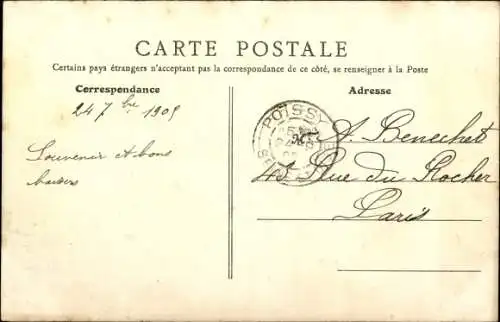 CARTE POSTALE
Certains pays étrangers n'acceptant pas la correspondance de ce côté, se renseigner à la Poste
Correspondance
Adresse
24 7bre 1905
Souvenir et bons
baisers
POISSY
A. Benechet
43 Rue du Rocher
Paris